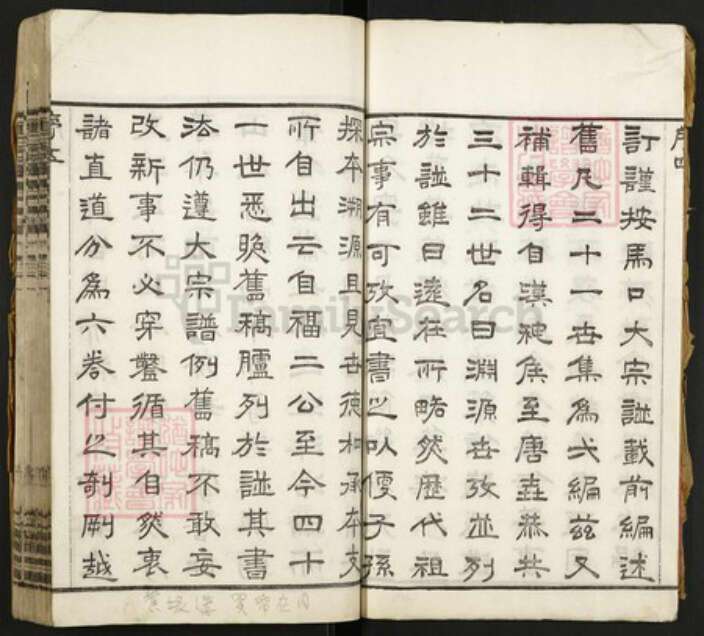 序四
訂謹按馬口大宗諩載前編述
舊凡三十一世集為弌編茲又
補輯得自漢秺矦至唐垚恭共
三十二世名曰淵源世攷並列
於諩雖曰遠在所略然歷代祖
宗事有可攷宜書之以便子孫
探本溯源且見世德相承本支
所自出云自福二公至今四十
一世悉映舊稿臚列於諩其書
法仍遵大宗譜例舊稿不敢妄
改新事不必穿鑿循其自然衷
諸直道分為六卷付之剞劂越
序五
FamilySearch